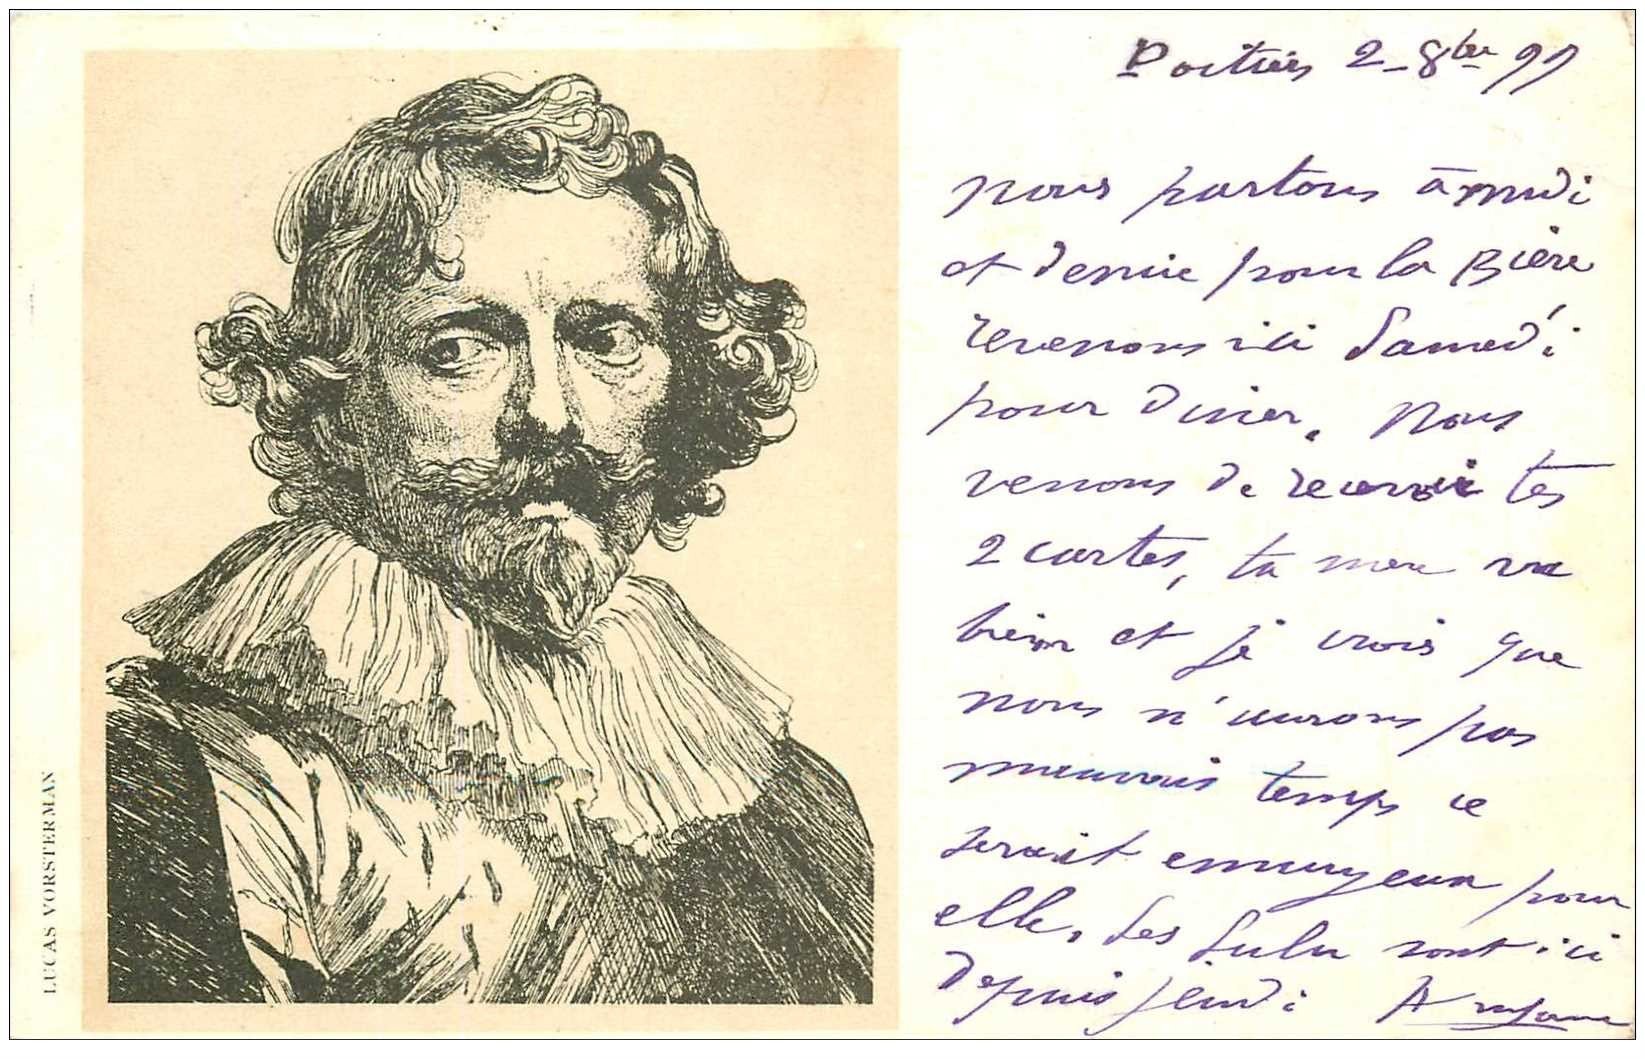 LUCAS VORSTERMAN
Poitiers 2_8bre 99
nous partons à midi
et demie pour la Bière
revenons ici Samedi
pour diner. Nous
venons de recevoir tes
2 cartes, ta mere va
bien et je crois que
nous n'aurons pas
mauvais temps ce
serait ennuyeux pour
elle. Les Lulu sont ici
depuis jeudi